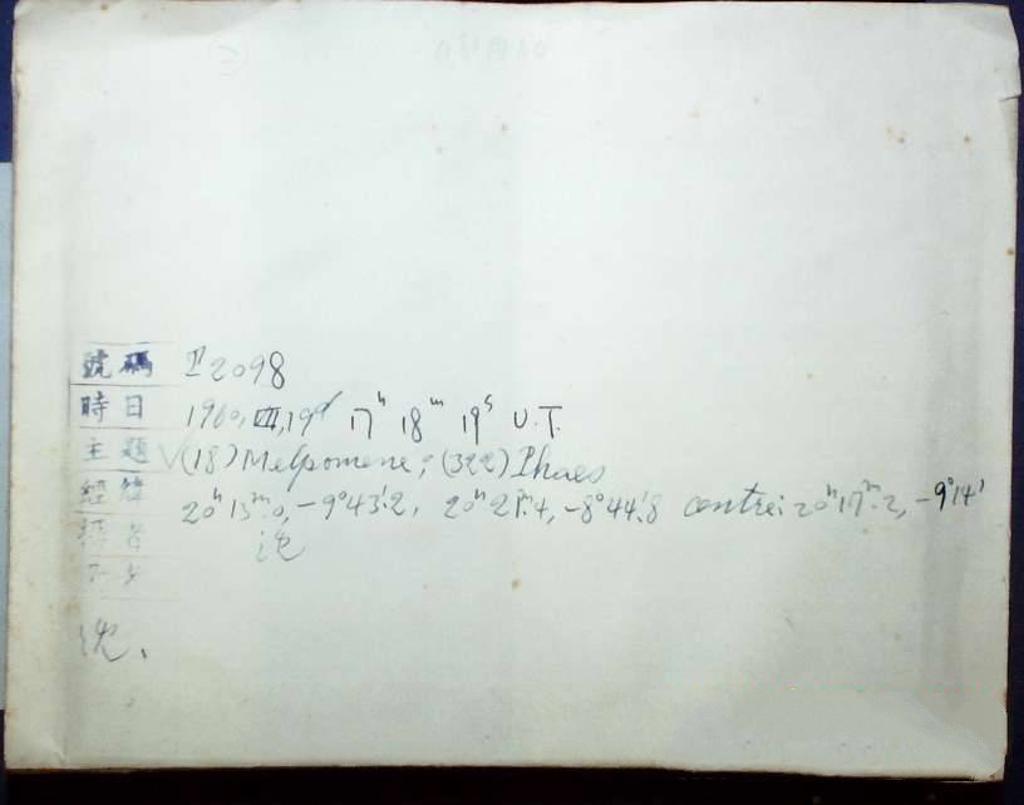 號碼 P2098
時日 1960, VII, 19d 17h 18m 19s U.T.
主題 V(18) Melpomene; (322) Phaeo
20h 13m.0, -9°43'.2, 20h 21m.4, -8°44'.8 centre: 20h 17m.2, -9°14'
沈
沈.